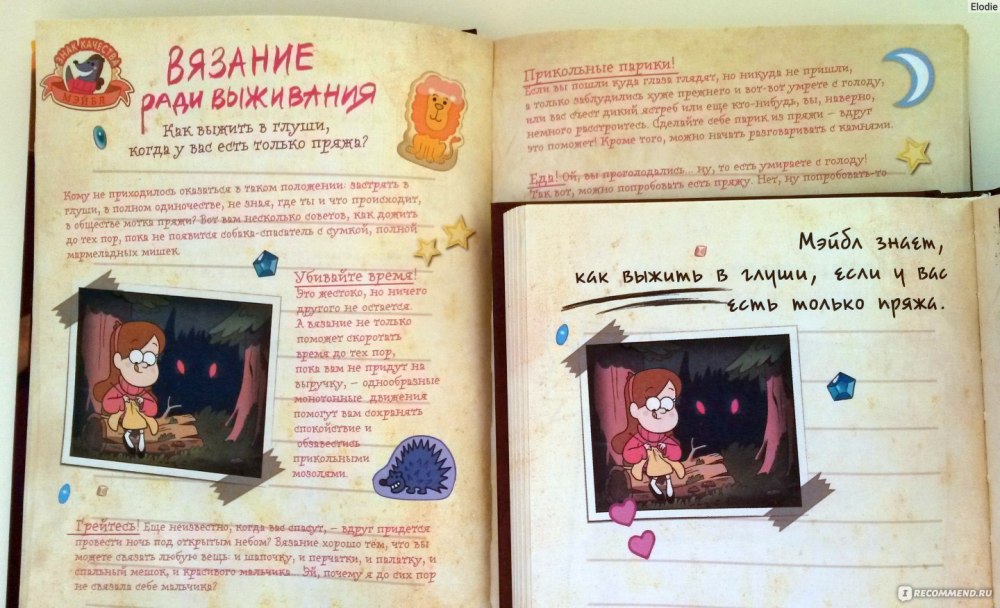 Elodie
ЗНАК КАЧЕСТВА
МЭЙБЛ
ВЯЗАНИЕ
РАДИ ВЫЖИВАНИЯ
Как выжить в глуши,
когда у вас есть только пряжа?
Кому не приходилось оказаться в таком положении: застрять в
глуши, в полном одиночестве, не зная, где ты и что происходит,
в обществе мотка пряжи? Вот вам несколько советов, как дожить
до тех пор, пока не появится собака-спасатель с сумкой, полной
мармеладных мишек.
Убивайте время!
Это жестоко, но ничего
другого не остается.
А вязание не только
поможет скоротать
время до тех пор,
пока вам не придут на
выручку, – однообразные
монотонные движения
помогут вам сохранять
спокойствие и
обзавестись
прикольными
мозолями.
Грейтесь! Еще неизвестно, когда вас спасут, – вдруг придется
провести ночь под открытым небом? Вязание хорошо тем, что вы
можете связать любую вещь: и шапочку, и перчатки, и палатку, и
спальный мешок, и красивого мальчика... Эй, почему я до сих пор
не связала себе мальчика?
Прикольные парики!
Если вы пошли куда глаза глядят, но никуда не пришли,
а только заблудились хуже прежнего и вот-вот умрете с голоду,
или вас съест дикий ястреб или еще кто-нибудь, вы, наверно,
немного расстроитесь. Сделайте себе парик из пряжи – вдруг
это поможет! Кроме того, можно начать разговаривать с камнями.
Еда! Ой, вы проголодались... ну, то есть умираете с голоду!
Так вот, можно попробовать есть пряжу. Нет, ну попробовать-то
Мэйбл знает,
как выжить в глуши, если у вас
есть только пряжа.
I RECOMMEND.RU